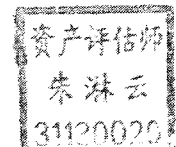 资产评估师
朱淋云
31120020